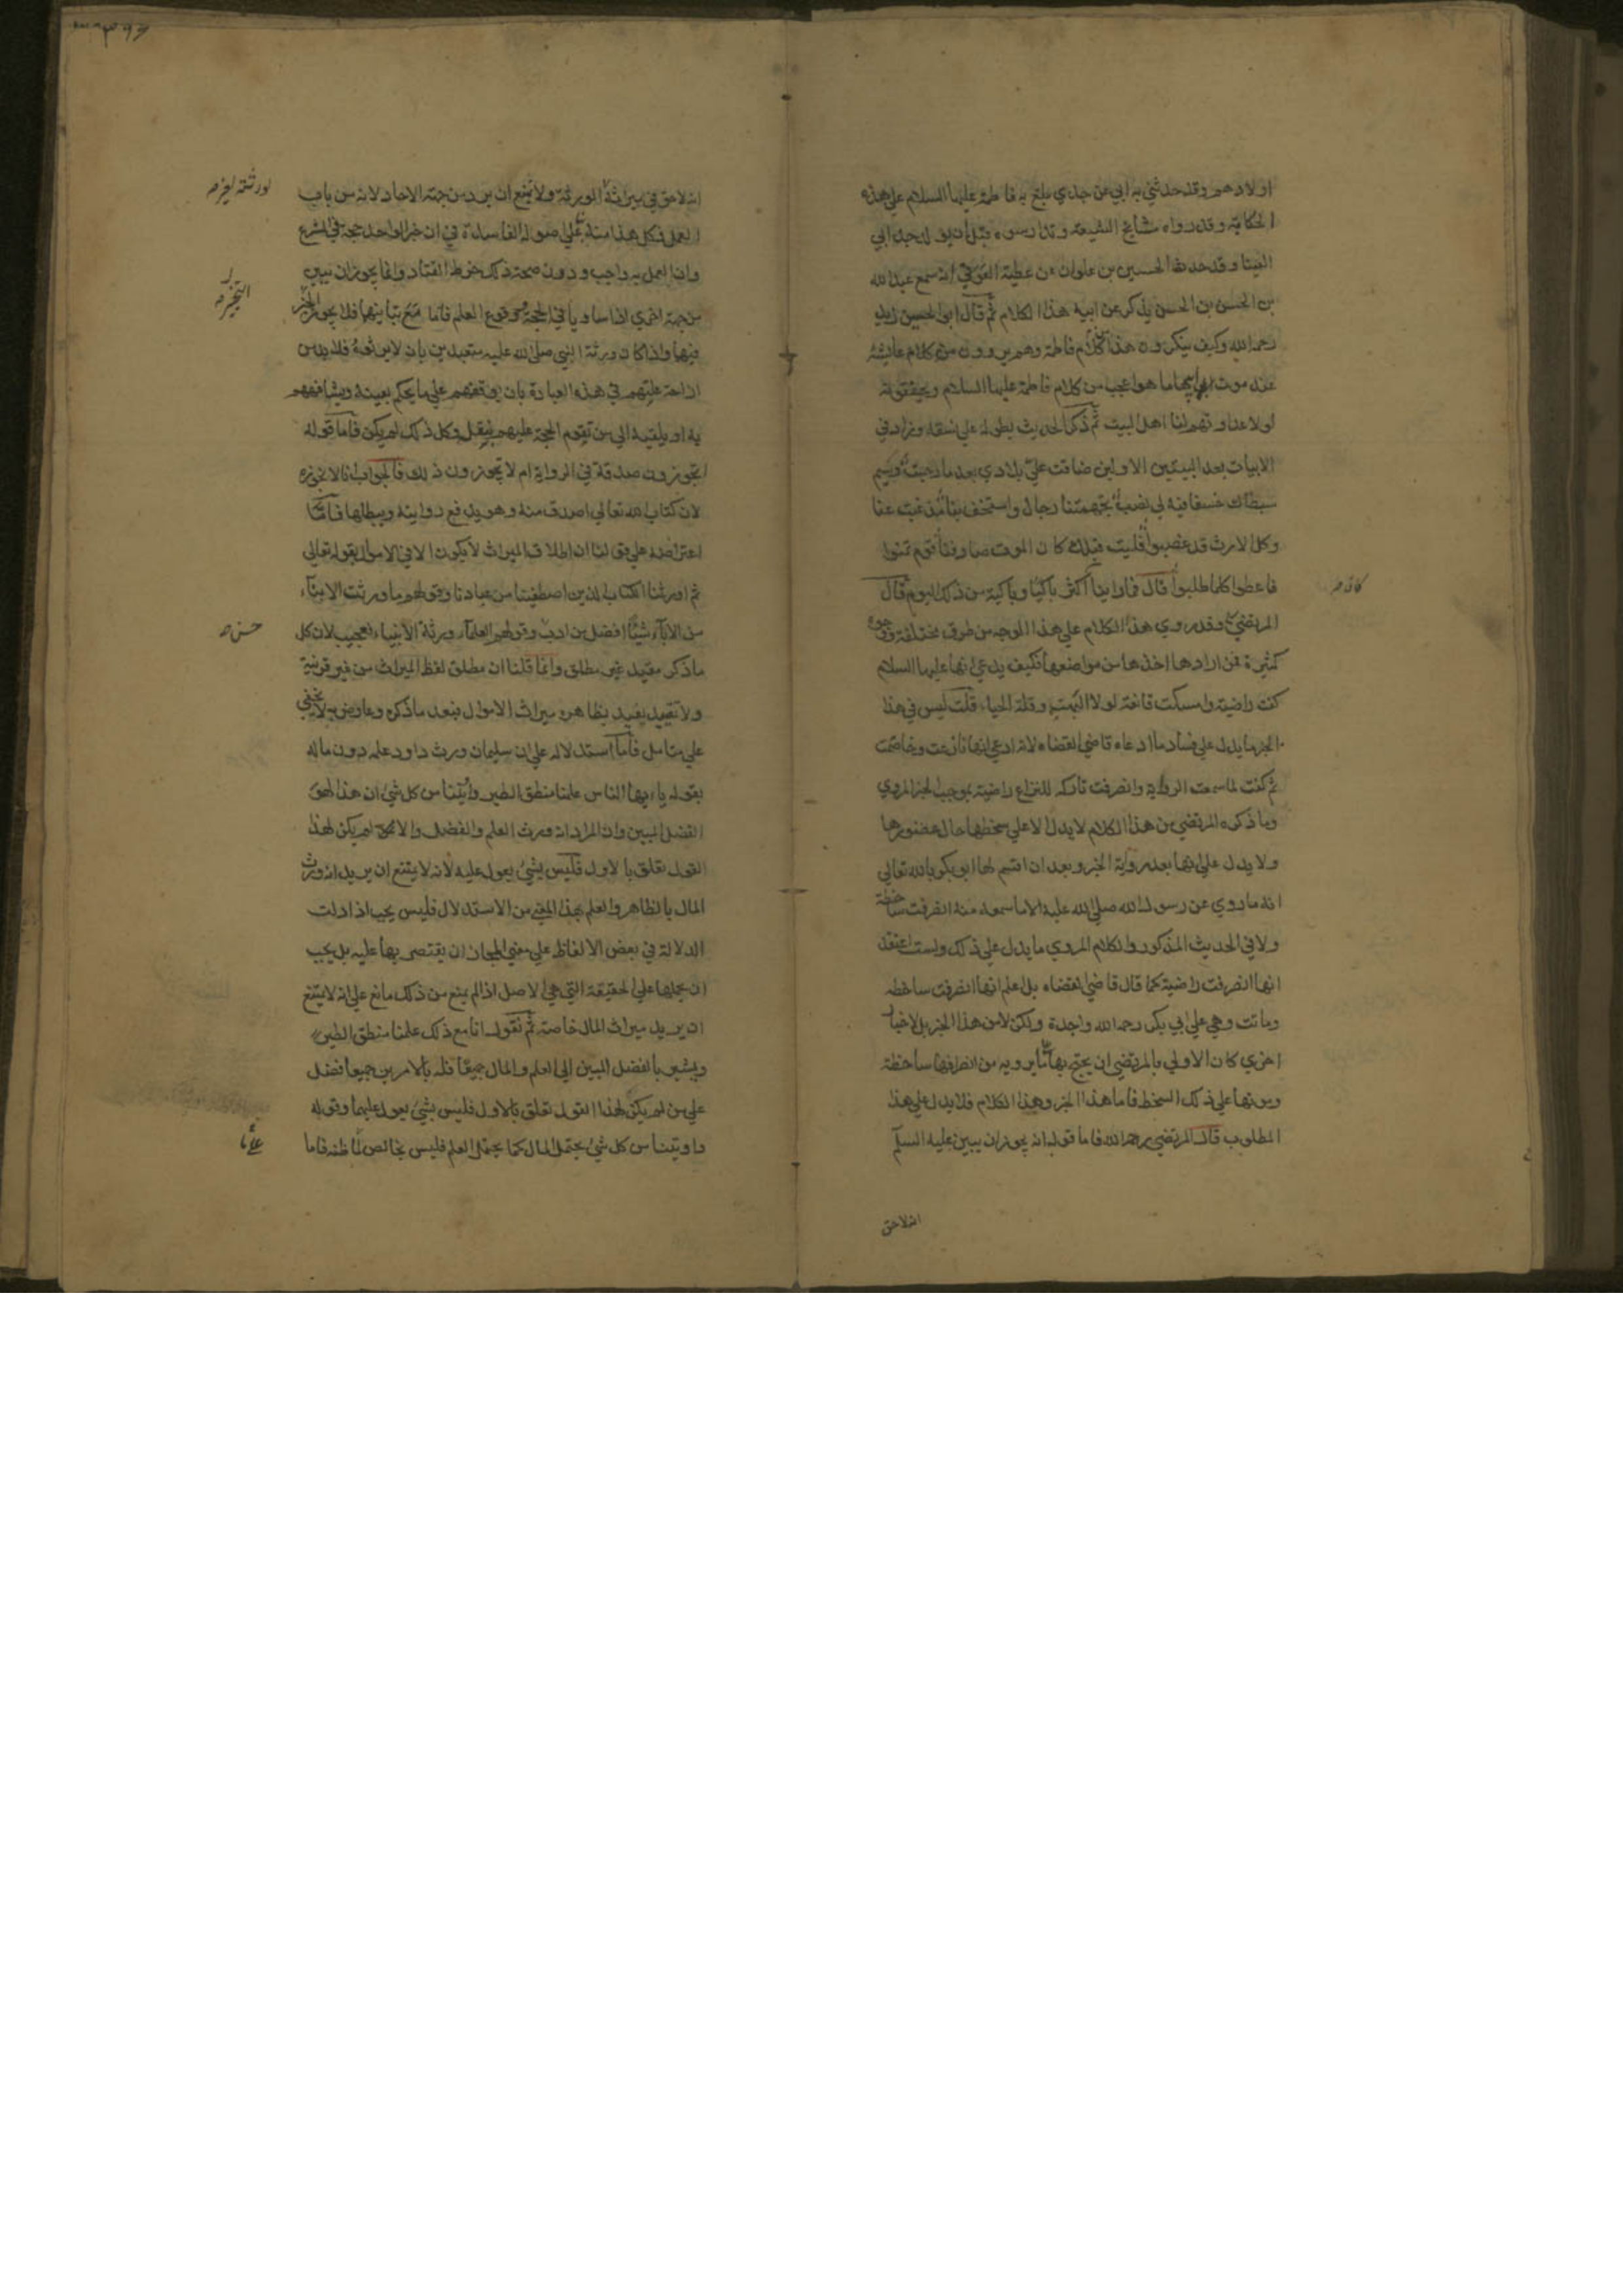 اولادهم وقد حدثني به ابي عن جدي يبلغ به فاطمة عليها السلام على هذه
الحكاية وقد رواه مشايخ الشيعة وتدارسوه قبل ان يولد جد ابي
العينا وقد حدث الحسين بن علوان عن عطية العوفي انه سمع عبد الله
بن الحسن بن الحسن يذكر عن ابيه هذا الكلام ثم قال ابو الحسين زيد
رحمه الله وكيف ينكرون هذا من كلام فاطمة وهم يروون من كلام عايشة
عند موت ابيها ما هو اعجب من كلام فاطمة عليها السلام ويحققونه
لولا عداوتهم لنا اهل البيت ثم ذكر الحديث بطوله على نسقه وزاد في
الابيات بعد البيتين الاولين ضاقت علي بلادي بعد ما رحبت وسيم
سبطاك خسفا فيه لي نصب تجهمتنا رجال واستخف بنا مذ غبت عنا
وكل الارث قد غصبوا فليت قبلك كان الموت صادفنا قوم تمنوا
فاعطوا كلما طلبوا قال فما راينا اكثر باكيا وباكية من ذلك اليوم قال
المرتضى وقد روي هذا الكلام على هذا الوجه من طرق مختلفة ووجوه
كثيرة فمن ارادها اخذها من مواضعها فكيف يدعي انها عليها السلام
كفت راضية وامسكت قانعة لولا البهت وقلة الحياء قلت ليس في هذا
الخبر ما يدل على فساد ما ادعاه قاضي القضاه لانه ادعى انها نازعت وخاصمت
ثم كفت لما سمعت الرواية وانصرفت تاركه للنزاع راضية بموجب الخبر المروي
وما ذكره المرتضى من هذا الكلام لا يدل الا على سخطها حال حضورها
ولا يدل على انها بعد رواية الخبر وبعد ان اقسم لها ابو بكر بالله تعالى
انه ما روي عن رسول الله صلى الله عليه الا ما سمعه منه انصرفت ساخطة
ولا في الحديث المذكور والكلام المروي ما يدل على ذلك ولست اعتقد
انها انصرفت راضية كما قال قاضي القضاه بل اعلم انها انصرفت ساخطه
وماتت وهي على ابي بكر رحمه الله واجدة ولكن لا من هذا الخبر بل لاخبار
اخرى كان الاولى بالمرتضى ان يحتج بها على ما يرويه من انصرافها ساخطة
وموتها على ذلك السخط فاما هذا الخبر وهذا الكلام فلا يدل على هذا
المطلوب قال المرتضى رحمه الله فاما قوله انه يجوز ان يبين عليه السلم
انه لا حق
كانه
انه لا حق في ميراثه لورثته ولا يمتنع ان يرد من جهة الاحاد لانه من باب
العمل فكل هذا منه على اصوله الفاسدة في ان خبر الواحد حجة في الشرع
وان العمل به واجب ودون صحة ذلك خرط القتاد وانما يجوز ان يبين
من جهة اخرى اذا تساويا في الحجة ووقوع العلم فاما مع تباينهما فلا يجوز التخيير
فيهما واذا كان ورثة النبي صلى الله عليه متعبدين بان لا يرثوه فلا بد من
ازاحة علتهم في هذه العبادة بان يوقفهم على ما يحكم بعينه ويشافههم
به او يلقيه الى من تقوم الحجة عليهم بنقله وكل ذلك لم يكن فاما قوله
اتجوزون صدقة في الرواية ام لا تجوزون ذلك فالجواب انا لا نجوزه
لان كتاب الله تعالى اصدق منه وهو يدفع روايته ويبطلها فاما
اعتراضه على قولنا ان اطلاق الميراث لا يكون الا في الاموال بقوله تعالى
ثم اورثنا الكتاب الذين اصطفينا من عبادنا وقولهم ما ورثت الابناء
من الاباء شيئا افضل من ادب وقولهم العلماء ورثة الانبياء فعجيب لان كل
ما ذكر مقيد غير مطلق وانما قلنا ان مطلق لفظ الميراث من غير قرينة
ولا تقييد يفيد بظاهره ميراث الاموال فبعد ما ذكره وعارض به لا يخفى
على متامل فاما استدلاله على ان سليمان ورث داود علمه دون ماله
بقوله يا ايها الناس علمنا منطق الطير واوتينا من كل شئ ان هذا لهو
الفضل المبين وان المراد انه ورث العلم والفضل والا لم يكن لهذا
القول تعلق بالاول فليس بشئ يعول عليه لانه لا يمتنع ان يريد انه ورث
المال بالظاهر والعلم بهذا المعنى من الاستدلال فليس يجب اذا دلت
الدلالة في بعض الالفاظ على معنى المجاز ان يقتصر بها عليه بل يجب
ان يحملها على الحقيقة التي هي الاصل اذا لم يمنع من ذلك مانع على انه لا يمتنع
ان يريد ميراث المال خاصة ثم نقول انا مع ذلك علمنا منطق الطير
ويشير بالفضل المبين الى العلم والمال جميعا فله بالامرين جميعا فضل
على من لم يكن لهذا القول تعلق بالاول فليس بشئ يعول عليهما وقوله
واوتينا من كل شئ يحتمل المال كما يحتمل العلم فليس بخالص لما ظنه فاما
لورثته
التخيير
حسن